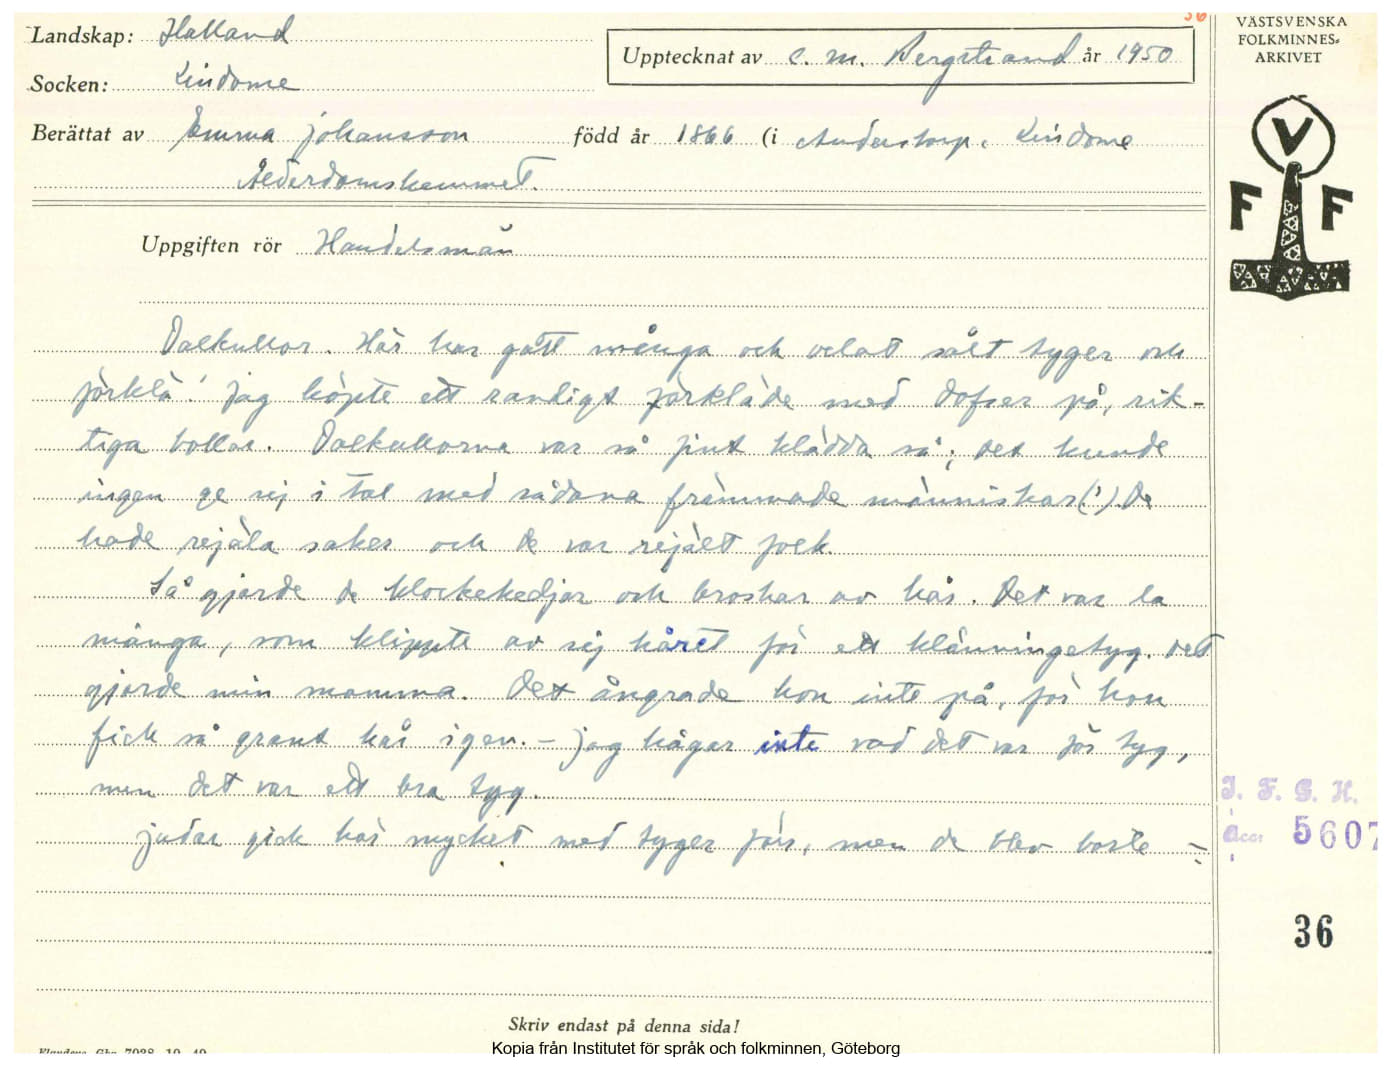 36
Landskap: Halland
Socken: Lindome
Upptecknat av C. M. Bergstrand år 1950
VÄSTSVENSKA
FOLKMINNES-
ARKIVET
Berättat av Emma Johansson född år 1866 (i Anderstorp, Lindome
Ålderdomshemmet.
V
F F
Uppgiften rör Handelsmän
Dalkullor. Här har gått många och velat sålt tyger och
förklä! Jag köpte ett randigt förkläde med dofser på, rik-
tiga bollar. Dalkullorna var så fint klädda så; det kunde
ingen ge sej i tal med sådana främmade människor(!). De
hade rejäla saker och de var rejält folk.
Så gjorde de klockekedjor och broskar av hår. Det var la
många, som klippte av sej håret för ett klänningetyg. Det
gjorde min mamma. Det ångrade hon inte på, för hon
fick så grant hår igen. – Jag hågar inte vad det var för tyg,
men det var ett bra tyg.
Judar gick här mycket med tyger förr, men de blev borte –
I. F. G. H.
Acc: 5607
36
Skriv endast på denna sida!
Kopia från Institutet för språk och folkminnen, Göteborg